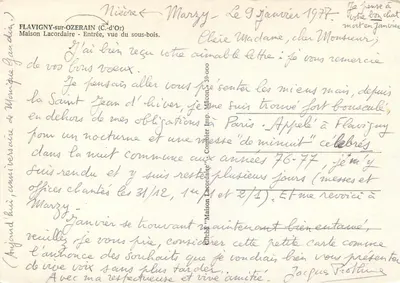 Nièvre
Marzy - Le 9 janvier 1977
FLAVIGNY-sur-OZERAIN (C.-d'Or)
Maison Lacordaire - Entrée, vue du sous-bois.
Je pense à
votre bon chat
mort en janvier
Chère Madame, cher Monsieur,
J'ai bien reçu votre aimable lettre : je vous remercie
de vos bons voeux.
Je pensais aller vous présenter les miens mais, depuis
la Saint Jean d'hiver, je me suis trouvé fort bousculé,
en dehors de mes obligations à Paris. Appelé à Flavigny
pour un nocturne et une messe "de minuit" célébrés
dans la nuit commune aux années 76-77, je m'y
suis rendu et y suis resté plusieurs jours (messes et
offices chantés les 31/12, 1/1 et 2/1). Et me revoici à
Marzy.
Janvier se trouvant maintenant bien entamé,
veuillez, je vous prie, considérer cette petite carte comme
l'annonce des souhaits que je voudrais bien vous présenter
de vive voix sans plus tarder.
Avec ma respectueuse et vive amitié.
Jacques
(Aujourd'hui, anniversaire de Monique
Maison Lacordaire